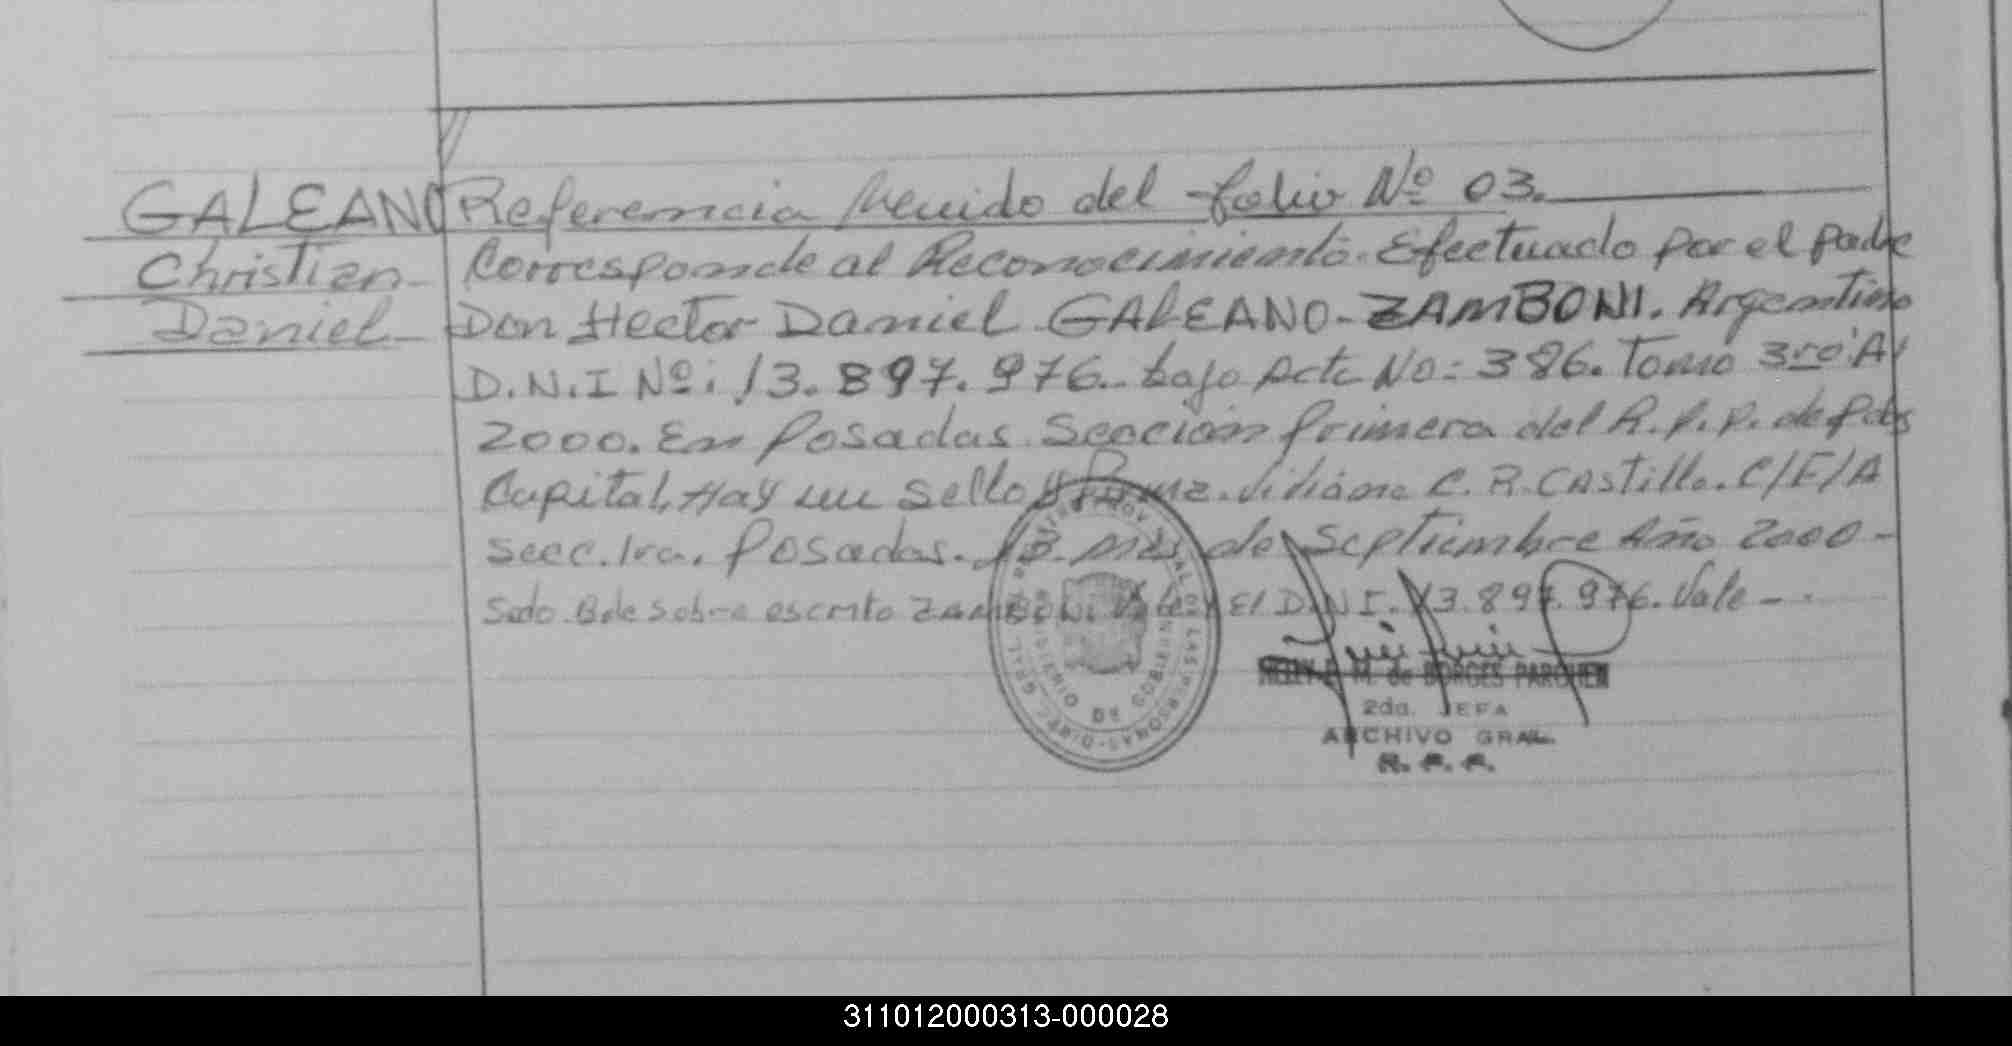 GALEANO Referencia Venido del folio Nº 03.
Christian Corresponde al Reconocimiento Efectuado por el padre
Daniel Don Hector Daniel GALEANO-ZAMBONI. Argentino
D.N.I Nº: 13.897.976. bajo Acta No: 386. Tomo 3ro "A"
2000. En Posadas Sección primera del R.P.P. de Pdas
Capital, Hay un sello y Firma. Viviana C. R. Castillo. C/E/A
Secc. 1ra. Posadas. 13. Mes de Septiembre Año 2000-
sobre escrito ZAMBONI Vale y El D.N.I. 13.897.976. Vale-
M. de BORGES PARCHEN
2da. JEFA
ARCHIVO GRAL.
R. P. P.
MINISTERIO DE GOBIERNO
311012000313-000028